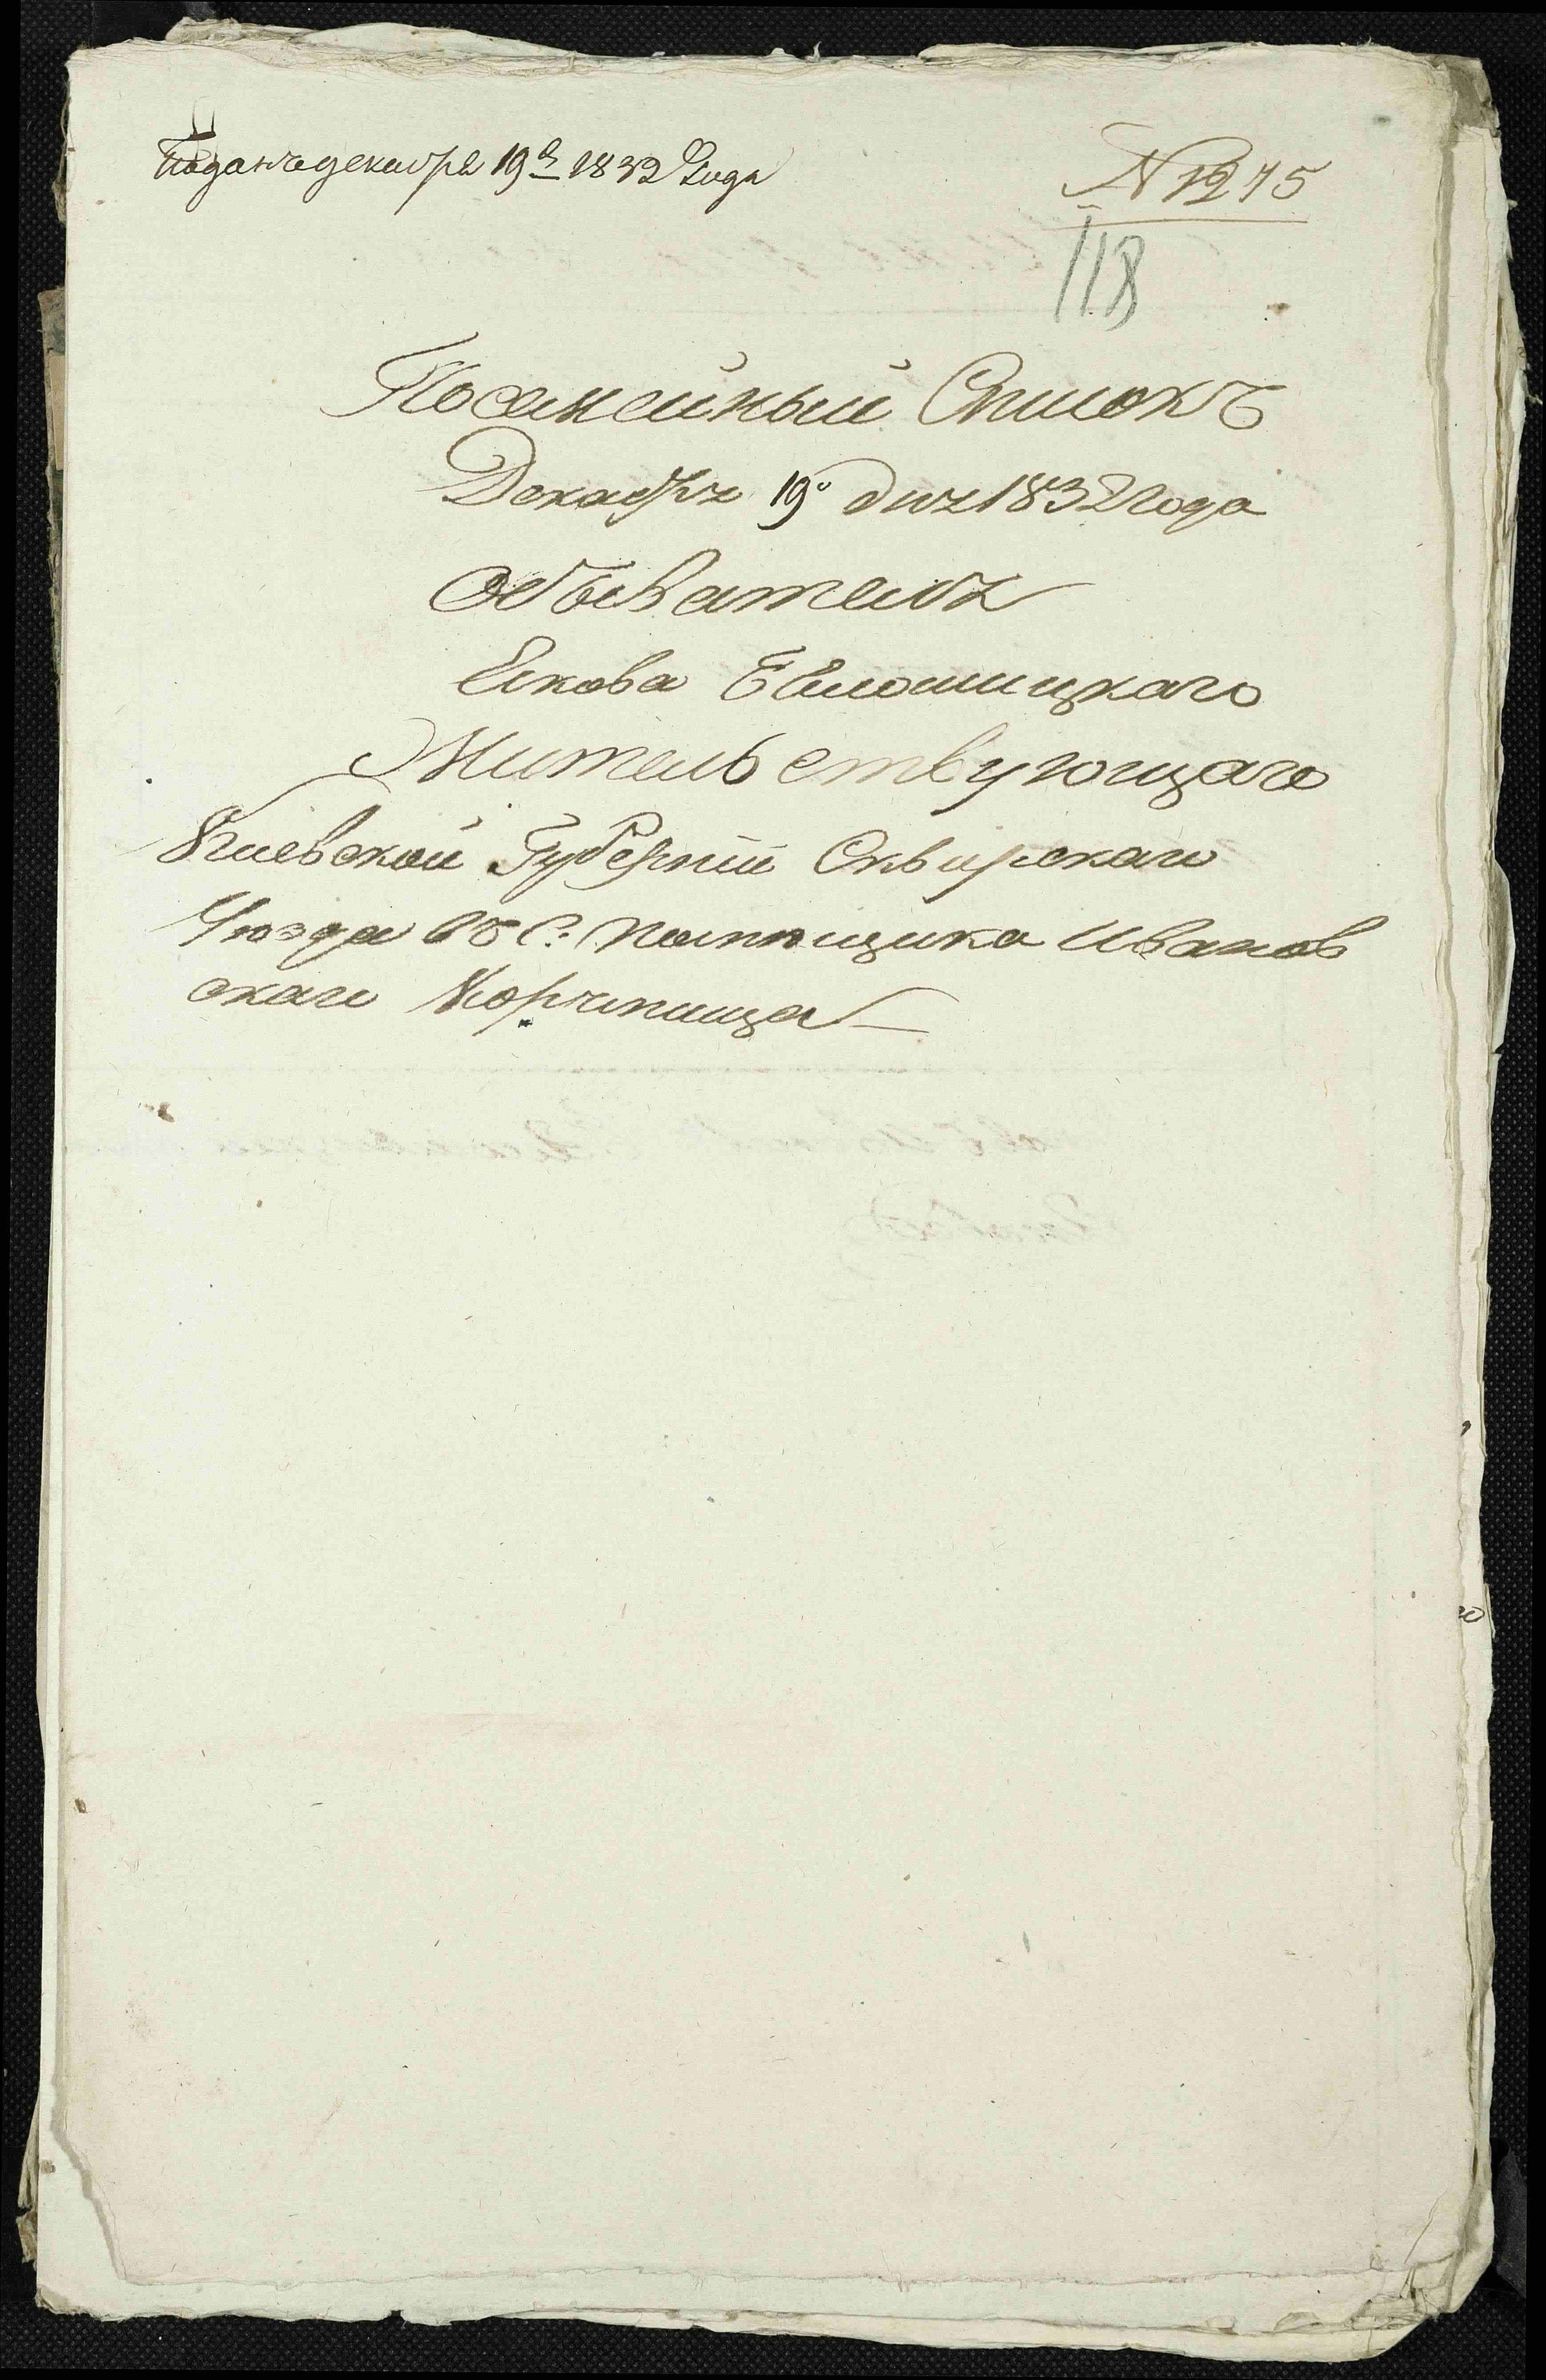 Поданъ декабря 19 д 1832 года
N 1275
118
Посемейный Списокъ
Декабря 19º дня 1832 года
Обывателя
Якова Бѣлошицкаго
Жительствующаго
Кіевской Губерніи Сквирскаго
Уѣзда въ С: помѣщика Иванов
скаго Корчинища